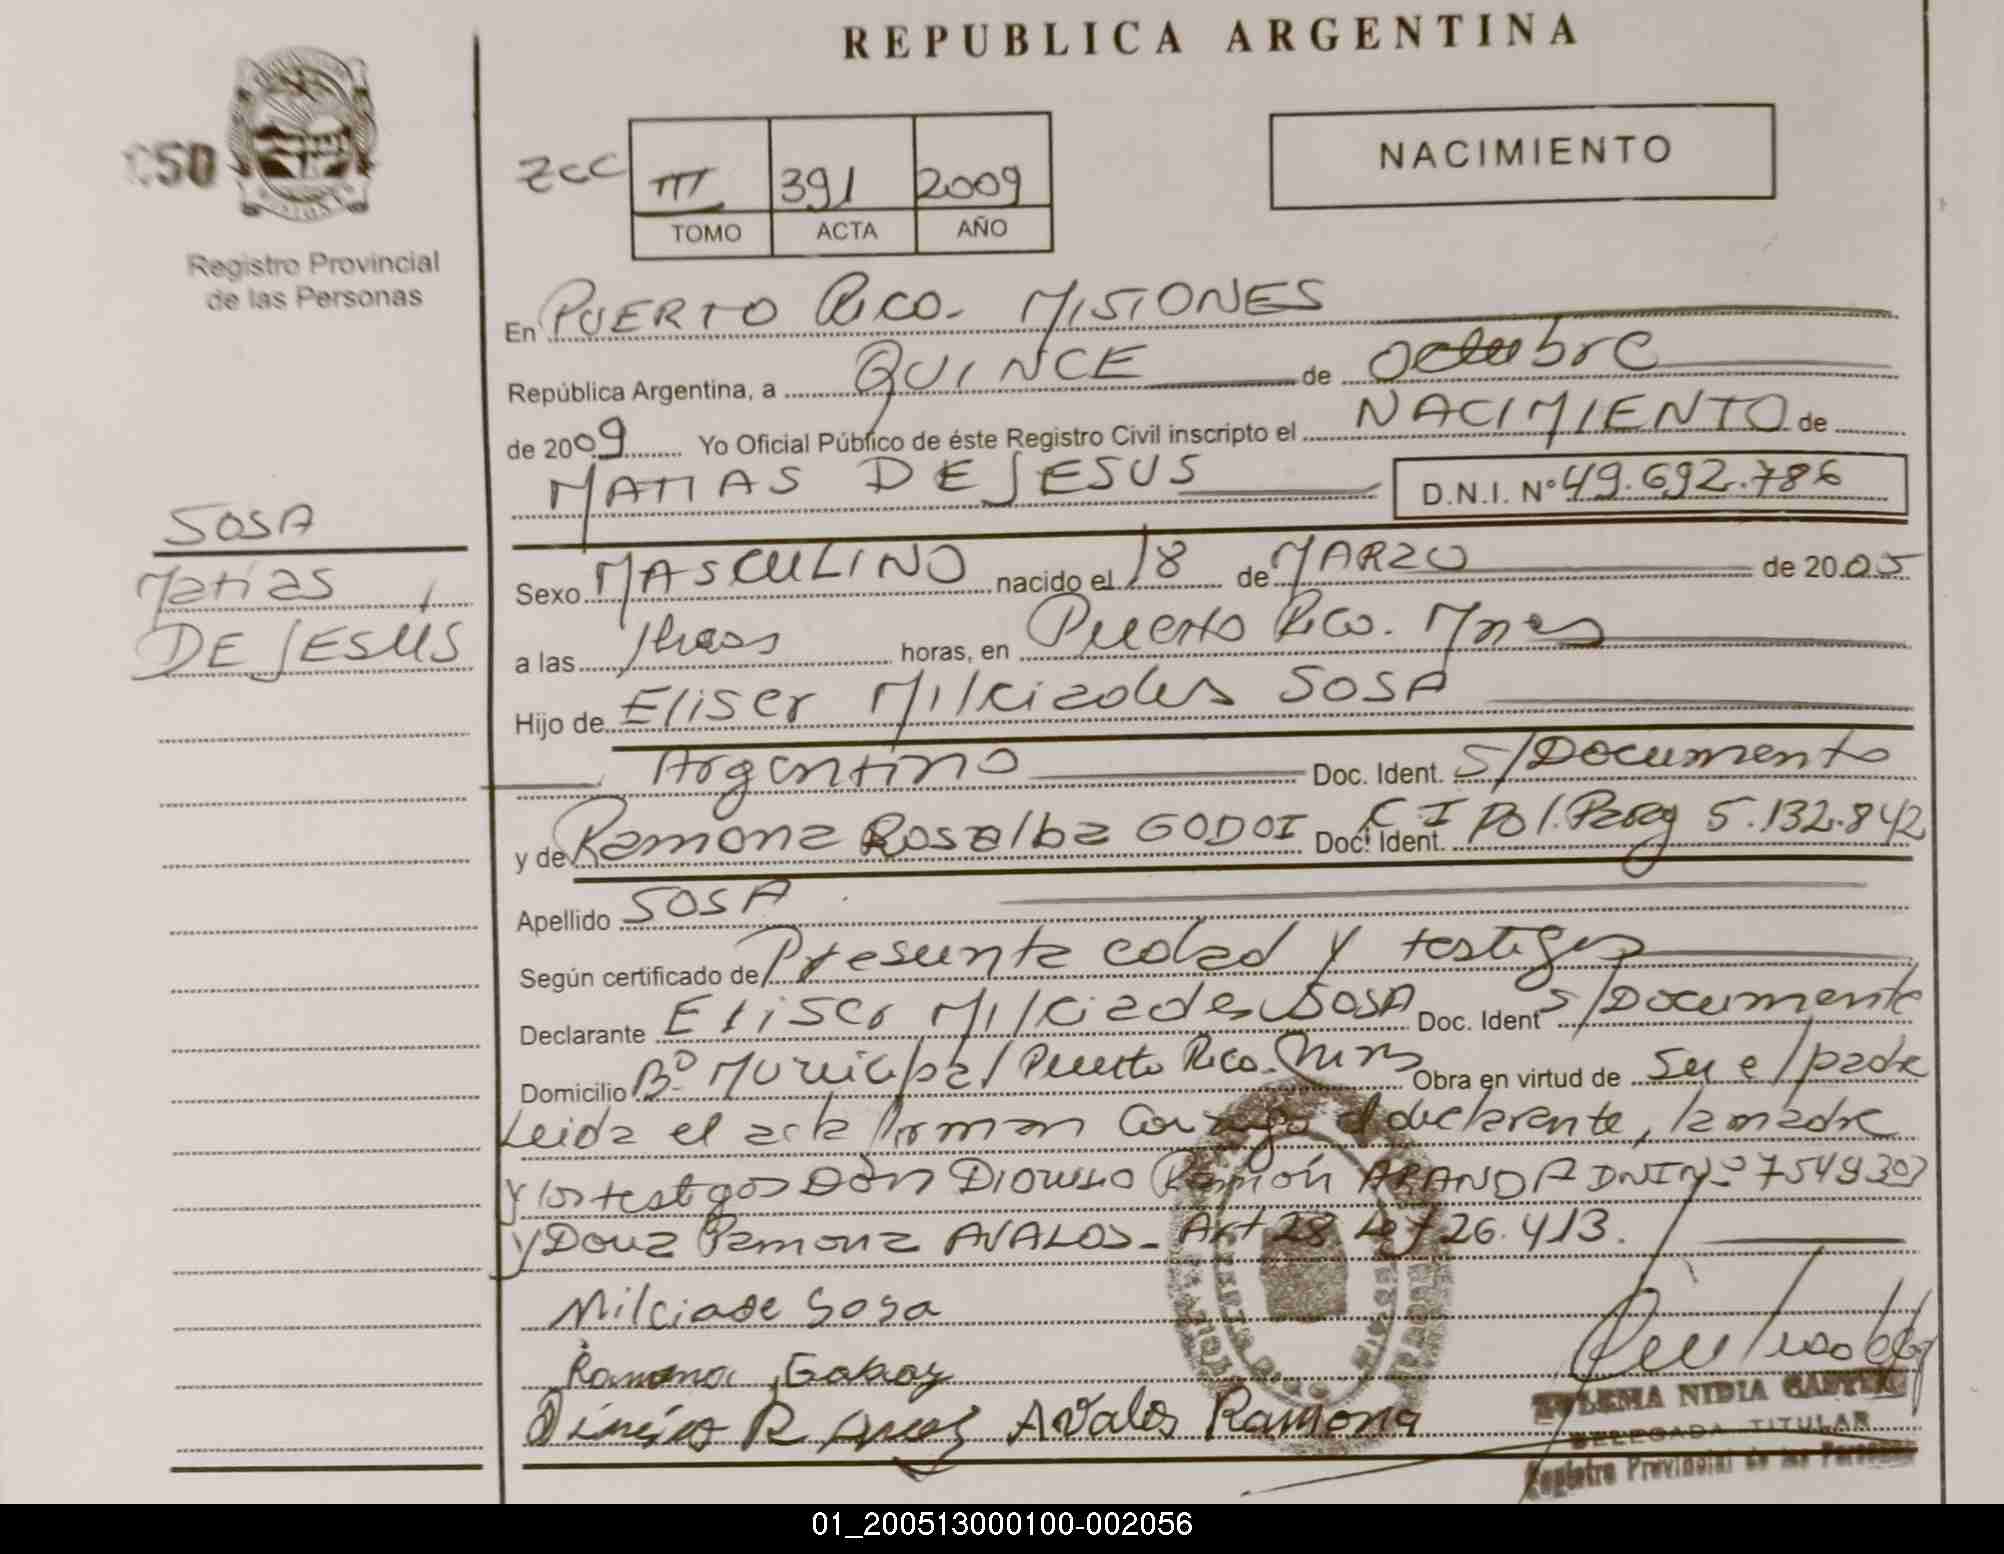 REPUBLICA ARGENTINA
Registro Provincial
de las Personas
III 391 2009
TOMO ACTA AÑO
NACIMIENTO
En PUERTO RICO - MISIONES
República Argentina, a QUINCE de octubre
de 2009 Yo Oficial Público de éste Registro Civil inscripto el NACIMIENTO de
MATIAS DE JESUS D.N.I. Nº 49.692.786
SOSA
Matias
DE JESUS
Sexo MASCULINO nacido el 18 de MARZO de 2005
a las horas, en Puerto Rico. Mnes
Hijo de Eliser Milciades SOSA
Argentino Doc. Ident. S/Documento
y de Ramona Rosalba GODOI Doc. Ident. C I Pol. Parag 5.132.842
Apellido SOSA
Según certificado de Presunta edad y testigos
Declarante Eliser Milciades SOSA Doc. Ident S/Documento
Domicilio Bº Municipal Puerto Rico. Mnes Obra en virtud de Ser el padre
Leida el acta firman el declarante, la madre
y los testigos Don Dionisio Ramón ARANDA DNI Nº 7549307
y Doña Ramona AVALOS - Art 28 Ley 26.413.
Milciade Sosa
Ramona
R Avalos Ramona
ZULEMA NIDIA
DELEGADA TITULAR
Registro Provincial de las Personas
01_200513000100-002056